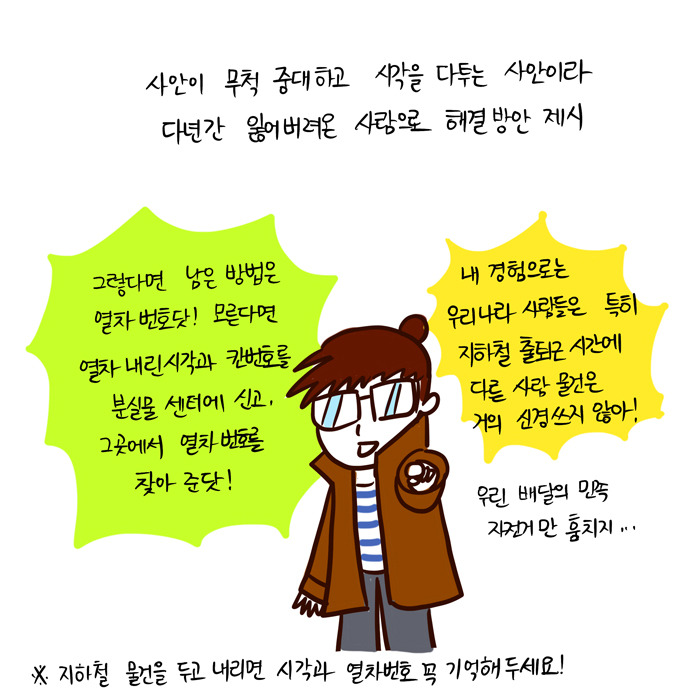 사안이 무척 중대하고 시각을 다투는 사안이라
다년간 잃어버려온 사람으로 해결방안 제시
그렇다면 남은 방법은
열차번호닷! 모른다면
열차 내린시각과 칸번호를
분실물 센터에 신고,
그곳에서 열차번호를
찾아 준닷!
내 경험으로는
우리나라 사람들은 특히
지하철 출퇴근 시간에
다른 사람 물건은
거의 신경쓰지 않아!
우린 배달의 민족
자전거만 훔치지...
※ 지하철 물건을 두고 내리면 시각과 열차번호 꼭 기억해두세요!